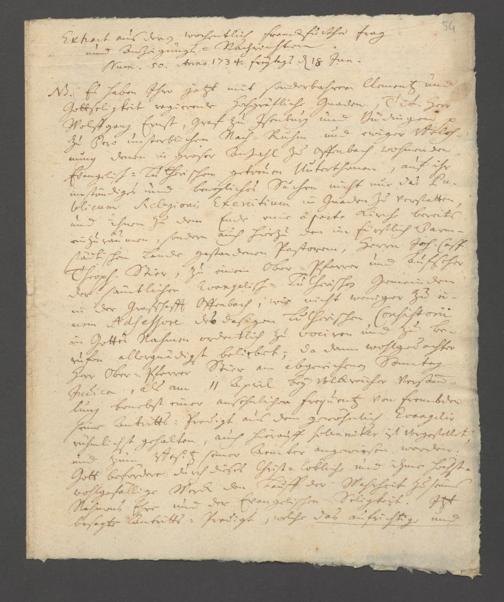 54
Extract aus denen wochentlich Franckfurther Frag
und Anzeigungs-Nachrichten.
Num. 50. Anno 1734. Freytags d. 18 Jun.
NB. Es haben Ihro jetzt mit sonderbahrer Clementz und
Gottseligkeit regierende Hochgräfliche Gnaden, Herr
Wolffgang Ernst, Graf zu Ysenburg und Büdingen p
zu Dero unsterblichen Nach-Ruhm und ewiger
denen in grosser Anzahl zu Offenbach wohnenden
Evangelisch-Lutherischen getreuen Unterthanen, auf ihr
inständiges und Suchen nicht nur das Pu-
blicum Religionis Exercitium in Gnaden zu verstatten,
und ihnen zu dem Ende eine Kirch bereits
einzuräumen, sondern auch hierzu den im Fürstlich Darm-
städtischen Lande gestandenen Pastorem, Herrn Joh.
Theoph. Stier, zu einem Ober-Pfarrer und
der sämtlichen Evangelisch-Lutherischen Gemeinden
in der Grafschafft Offenbach, wie nicht weniger zu ei-
nem des dasigen Lutherischen Consistorii
in Gottes Nahmen ordentlich zu vociren und zu be-
ruffen allergnädigst beliebet; da dann wohlgedachter
Herr Ober-Pfarrer Stier am abgewichenen Sonntag
Judica, als am 11 April bey Volckreicher Versam-
lung benebst einer ansehnlichen Frequentz von Fremden
seine Antritts-Predigt aus dem gewöhnlich Evangelio
rühmlichst gehalten, auch hierauff vorgestellet,
und zum seiner Aembter angewiesen worden.
Gott befördere durch dieses Christ-löbliche und ihme höchst-
wohlgefällige Werck den Lauff der Wahrheit zu seines
Nahmens Ehre und der Evangelischen Seeligkeit.
besagte Antritts-Predigt, welche das aufrichtige und